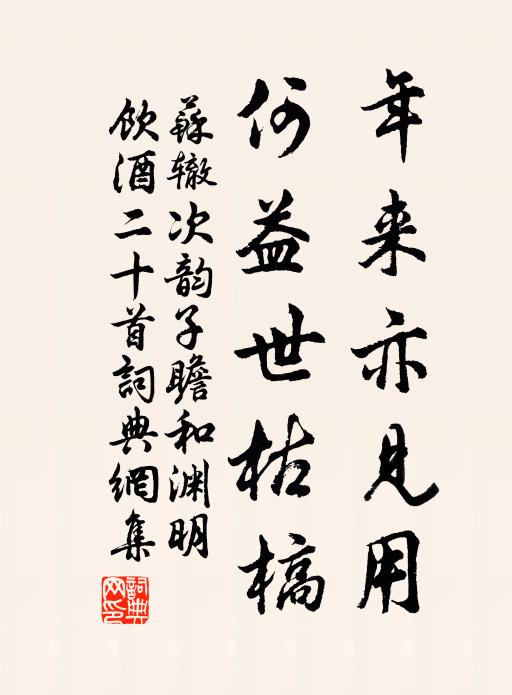 年来亦見用
何益世枯槁
蘇辙次韵子瞻和渊明
飲酒二十首詞典網集
詞典網印